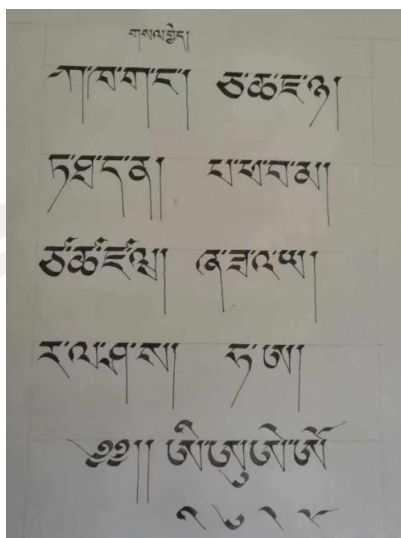 གསལ་བྱེད།
ཀ་ཁ་ག་ང་། ཅ་ཆ་ཇ་ཉ།
ཏ་ཐ་ད་ན།། པ་ཕ་བ་མ།།
ཙ་ཚ་ཛ་ཝ།། ཞ་ཟ་འ་ཡ།
ར་ལ་ཤ་ས།། ཧ་ཨ།།
༄༄།། ཨི་ཨུ་ཨེ་ཨོ